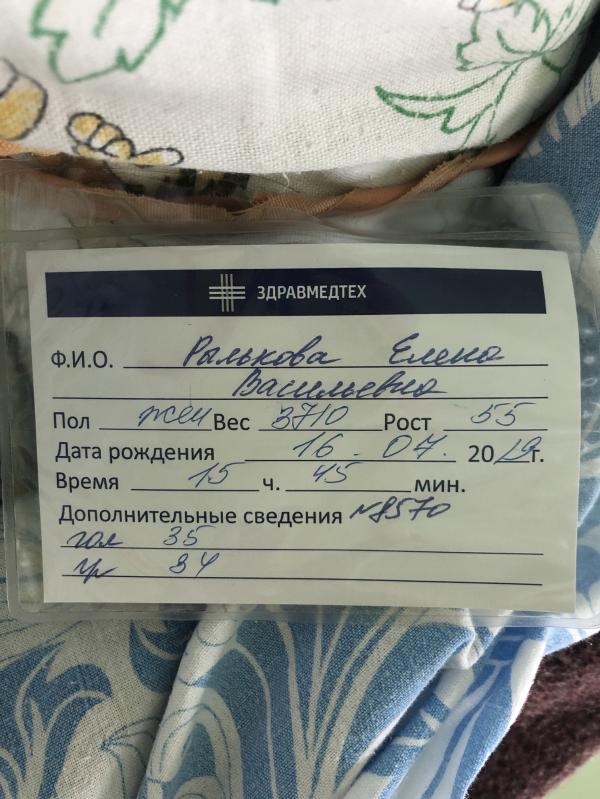 ЗДРАВМЕДТЕХ
Ф.И.О. Рылькова Елена
Васильевна
Пол жен Вес 3710 Рост 55
Дата рождения 16 . 07. 2019г.
Время 15 ч. 45 мин.
Дополнительные сведения №8570
гол 35
гр 34